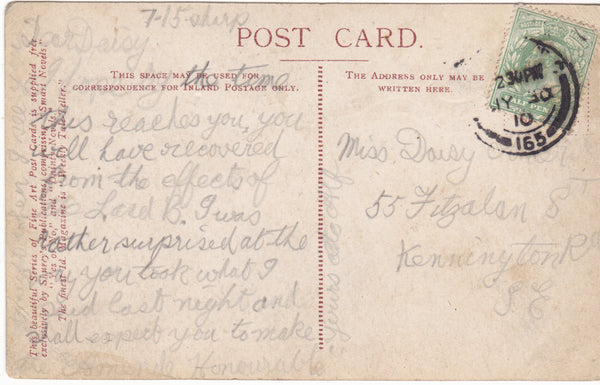 7-15 sharp
Dear Daisy
POST CARD.
THIS SPACE MAY BE USED FOR
CORRESPONDENCE FOR INLAND POSTAGE ONLY.
THE ADDRESS ONLY MAY BE
WRITTEN HERE.
hope by the time
this reaches you, you
will have recovered
from the effects of
Lord B. I was
rather surprised at the
way you took what I
said last night and
shall expect you to make
"Honourable"
yours
Miss Daisy
55 Fitzalan St
Kennington Rd
S.E
2 30 PM
JY 30
10
165
This beautiful Series of Fine Art Post Cards is supplied free
exclusively by Shurey's Publications, comprising "Smart Novels"
"Yes or No," and "Dainty Novels"
The finest 1d. Magazine is "Weekly Tale-Teller."